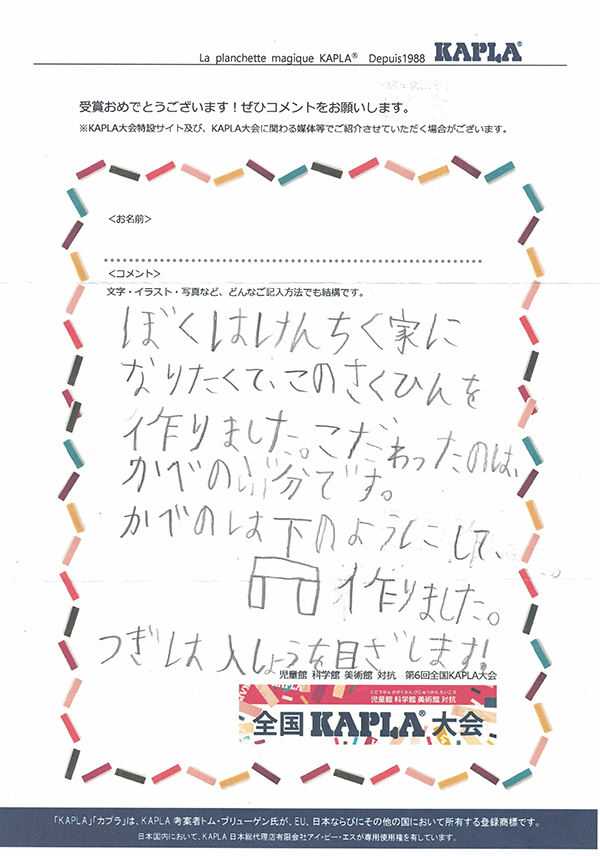 La planchette magique KAPLA® Depuis1988 KAPLA®
受賞おめでとうございます！ぜひコメントをお願いします。
※KAPLA大会特設サイト及び、KAPLA大会に関わる媒体等でご紹介させていただく場合がございます。
＜お名前＞
＜コメント＞
文字・イラスト・写真など、どんなご記入方法でも結構です。
ぼくはけんちく家に
なりたくて、このさくひんを
作りました。こだわったのは、
かべの部分です。
かべのは下のようにして、
作りました。
つぎは入しょうを目ざします!
児童館 科学館 美術館 対抗 第6回全国KAPLA大会
じどうかん かがくかん びじゅつかん たいこう
児童館 科学館 美術館 対抗
全国KAPLA®大会
「KAPLA」「カプラ」は、KAPLA 考案者トム・ブリューゲン氏が、EU、日本ならびにその他の国において所有する登録商標です。
日本国内において、KAPLA 日本総代理店有限会社アイ・ピー・エスが専用使用権を有しています。